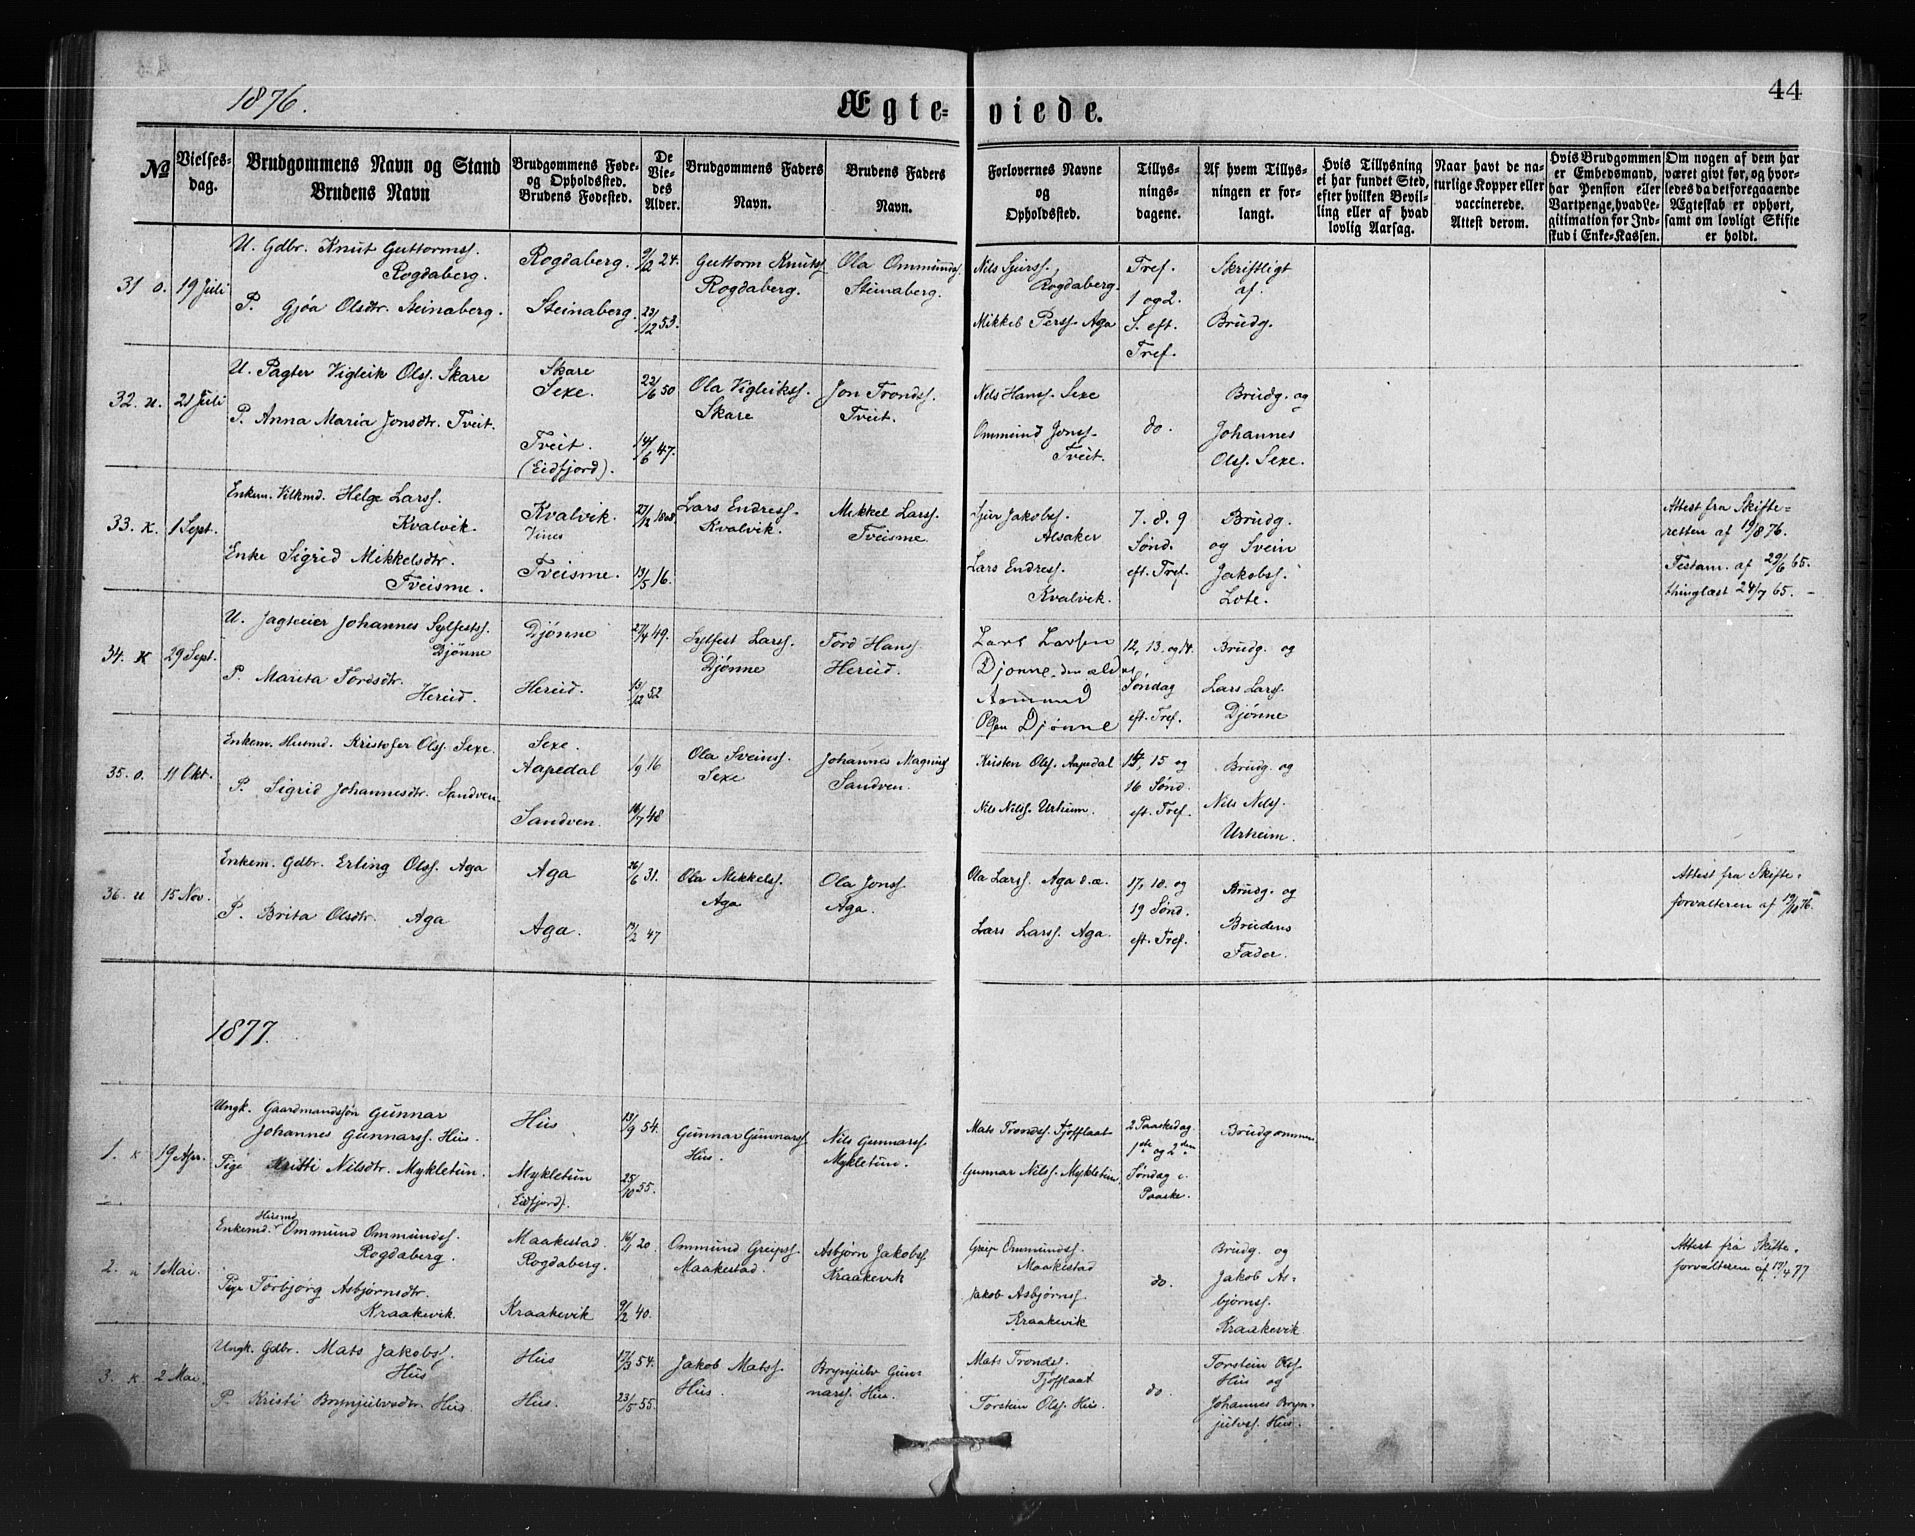 44
1876.
Ægte-viede.
No
Vielses-
dag.
Brudgommens Navn og Stand
Brudens Navn
Brudgommens Føde-
og Opholdssted.
Brudens Fødested.
De
Vie-
des
Alder.
Brudgommens Faders
Navn.
Brudens Faders
Navn.
Forlovernes Navne
og
Opholdssted.
Tillys-
nings-
dagene.
Af hvem Tillys-
ningen er for-
langt.
Hvis Tillysning
ei har fundet Sted,
efter hvilken Bevil-
ling eller af hvad
lovlig Aarsag.
Naar havt de na-
turlige Kopper eller
vaccinerede.
Attest derom.
Hvis Brudgommen
er Embedsmand,
har Pension eller
Vartpenge, hvad Le-
gitimation for Ind-
skud i Enke-Kassen.
Om nogen af dem har
været givt før, og hvor-
ledes da det foregaaende
Ægteskab er ophørt,
samt om lovligt Skifte
er holdt.
31 o.
19 Juli
U. Gdbr. Knut Guttormss.
Rogdaberg.
P. Gjøa Olsdtr. Steinaberg.
Rogdaberg.
Steinaberg.
9/2 24.
23/12 53.
Guttorm Knutss
Rogdaberg.
Ola Ommundss.
Steinaberg.
Nils Sjurss.
Rogdaberg.
Mikkel Perss. Aga
Tref.
1 og 2.
S. eft.
Tref.
Skriftligt
af.
Brudg.
32. u.
21 Juli
U. Pagter Vigleik Olss. Skare
P. Anna Maria Jonsdtr. Tveit.
Skare
Sexe.
Tveit.
(Eidfjord).
22/6 50
14/6 47.
Ola Vigleikss.
Skare
Jon Tronds.
Tveit.
Nils Hanss. Sexe
Ommund Jonss.
Tveit.
do.
Brudg. og
Johannes
Olss. Sexe.
33. K.
1 Sept.
Enkem. Vilkmd. Helge Larss.
Kvalvik.
Enke Sigrid Mikkelsdtr.
Tveisme.
Kvalvik.
Vines
Tveisme.
27/12 1808.
13/5 16.
Lars Endress.
Kvalvik.
Mikkel Larss.
Tveisme.
Sjur Jakobs.
Alsaker
Lars Endress.
Kvalvik.
7. 8. 9
Sønd.
eft. Tref.
Brudg.
og Svein
Jakobss.
Lote.
Attest fra Skifte-
retten af 19/8 76.
Testam. af 29/6 65.
thinglæst 24/7 65. -
34. K
29 Sept.
U. Jagteier Johannes Sylfestss.
Djønne
P. Marita Tordsdtr.
Hereid.
Djønne
Hereid.
27/4 49.
13/12 52
Sylfest Larss.
Djønne
Tord Hans.
Hereid.
Lars Larsen
Djønne, den ald
Aamund
Olsen Djønne
12, 13. og 14.
Søndag
eft. Tref.
Brudg. og
Lars Larss.
Djønne
35. o.
11 Okt.
Enkem. Husmd. Kristofer Olss. Sexe.
P. Sigrid Johannesdtr. Sandven.
Sexe.
Aapedal
Sandven.
1/9 16
16/7 48
Ola Sveinss.
Sexe
Johannes Magnus
Sandven.
Kristen Olss. Aapedal
Nils Nilss. Urheim.
14, 15 og
16 Sønd.
eft. Tref.
Brudg. og
Nils Nilss.
Urheim.
36. u
15 Nov.
Enkem. Gdbr. Erling Olss. Aga
P. Brita Olsdtr. Aga
Aga
Aga.
26/6 31.
14/2 47
Ola Mikkelss.
Aga
Ola Jonss.
Aga.
Ola Larss. Aga d.æ.
Lars Larss. Aga.
17, 18. og
19 Sønd.
eft. Tref.
Brudg. og
Brudens
Fader.
Attest fra Skifte-
forvalteren af 19/10 76.
1877.
1. K
19 Apr.
Ungk. Gaardmandssøn Gunnar
Johannes Gunnarss. Hus.
Pige Kristi Nilsdtr. Mykletun.
Hus
Mykletun
(Eidfjord).
13/9 54.
25/10 55.
Gunnar Gunnarss.
Hus.
Nils Gunnarss
Mykletun.
Mats Trondss. Tjofflaat
Gunnar Nilss. Mykletun.
2 Paaskedag
1ste og 2den
Søndag e.
Paaske.
Brudgommen
2. u
1 Mai.
Enkemd. Husmd. Ommund Ommundss.
Rogdaberg.
Pige Torbjørg Asbjørnsdtr.
Kraakevik.
Maakestad.
Rogdaberg.
Kraakevik
16/11 20.
9/2 40.
Ommund Greipss.
Maakestad.
Asbjørn Jakobss
Kraakevik
Greip Ommundss.
Maakestad
Jakob Asbjørnss.
Kraakevik
do.
Brudg. og
Jakob As-
bjørnss.
Kraakevik
Attest fra Skifte-
forvalteren af 17/4 77
3. K
2 Mai.
Ungk. Gdbr. Mats Jakobss.
Hus
P. Kristi Brynjulvsdtr. Hus
Hus
Hus.
17/3 54.
23/5 55.
Jakob Matss.
Hus.
Brynjulv Gun-
narss. Hus.
Mats Trondss.
Tjofflaat
Torstein Olss. Hus.
do.
Torstein Olss.
Hus og
Johannes Bryn-
julvss. Hus.